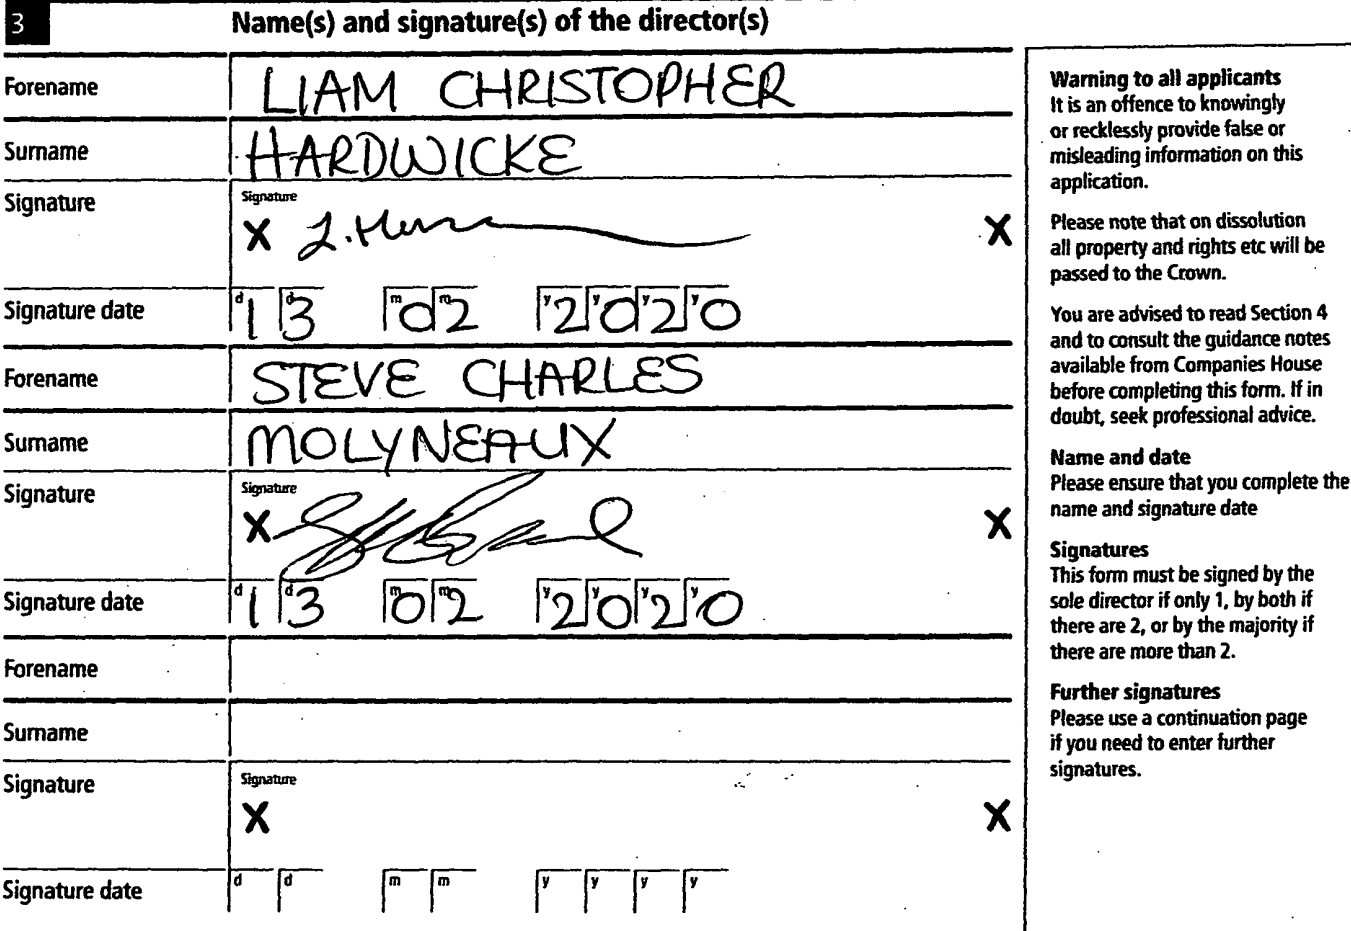 3 Name(s) and signature(s) of the director(s)
Forename LIAM CHRISTOPHER
Surname HARDWICKE
Signature Signature
X X
Signature date d1 d3 m0 m2 y2 y0 y2 y0
Forename STEVE CHARLES
Surname MOLYNEAUX
Signature Signature
X X
Signature date d1 d3 m0 m2 y2 y0 y2 y0
Forename
Surname
Signature Signature
X X
Signature date d d m m y y y y
Warning to all applicants
It is an offence to knowingly
or recklessly provide false or
misleading information on this
application.
Please note that on dissolution
all property and rights etc will be
passed to the Crown.
You are advised to read Section 4
and to consult the guidance notes
available from Companies House
before completing this form. If in
doubt, seek professional advice.
Name and date
Please ensure that you complete the
name and signature date
Signatures
This form must be signed by the
sole director if only 1, by both if
there are 2, or by the majority if
there are more than 2.
Further signatures
Please use a continuation page
if you need to enter further
signatures.